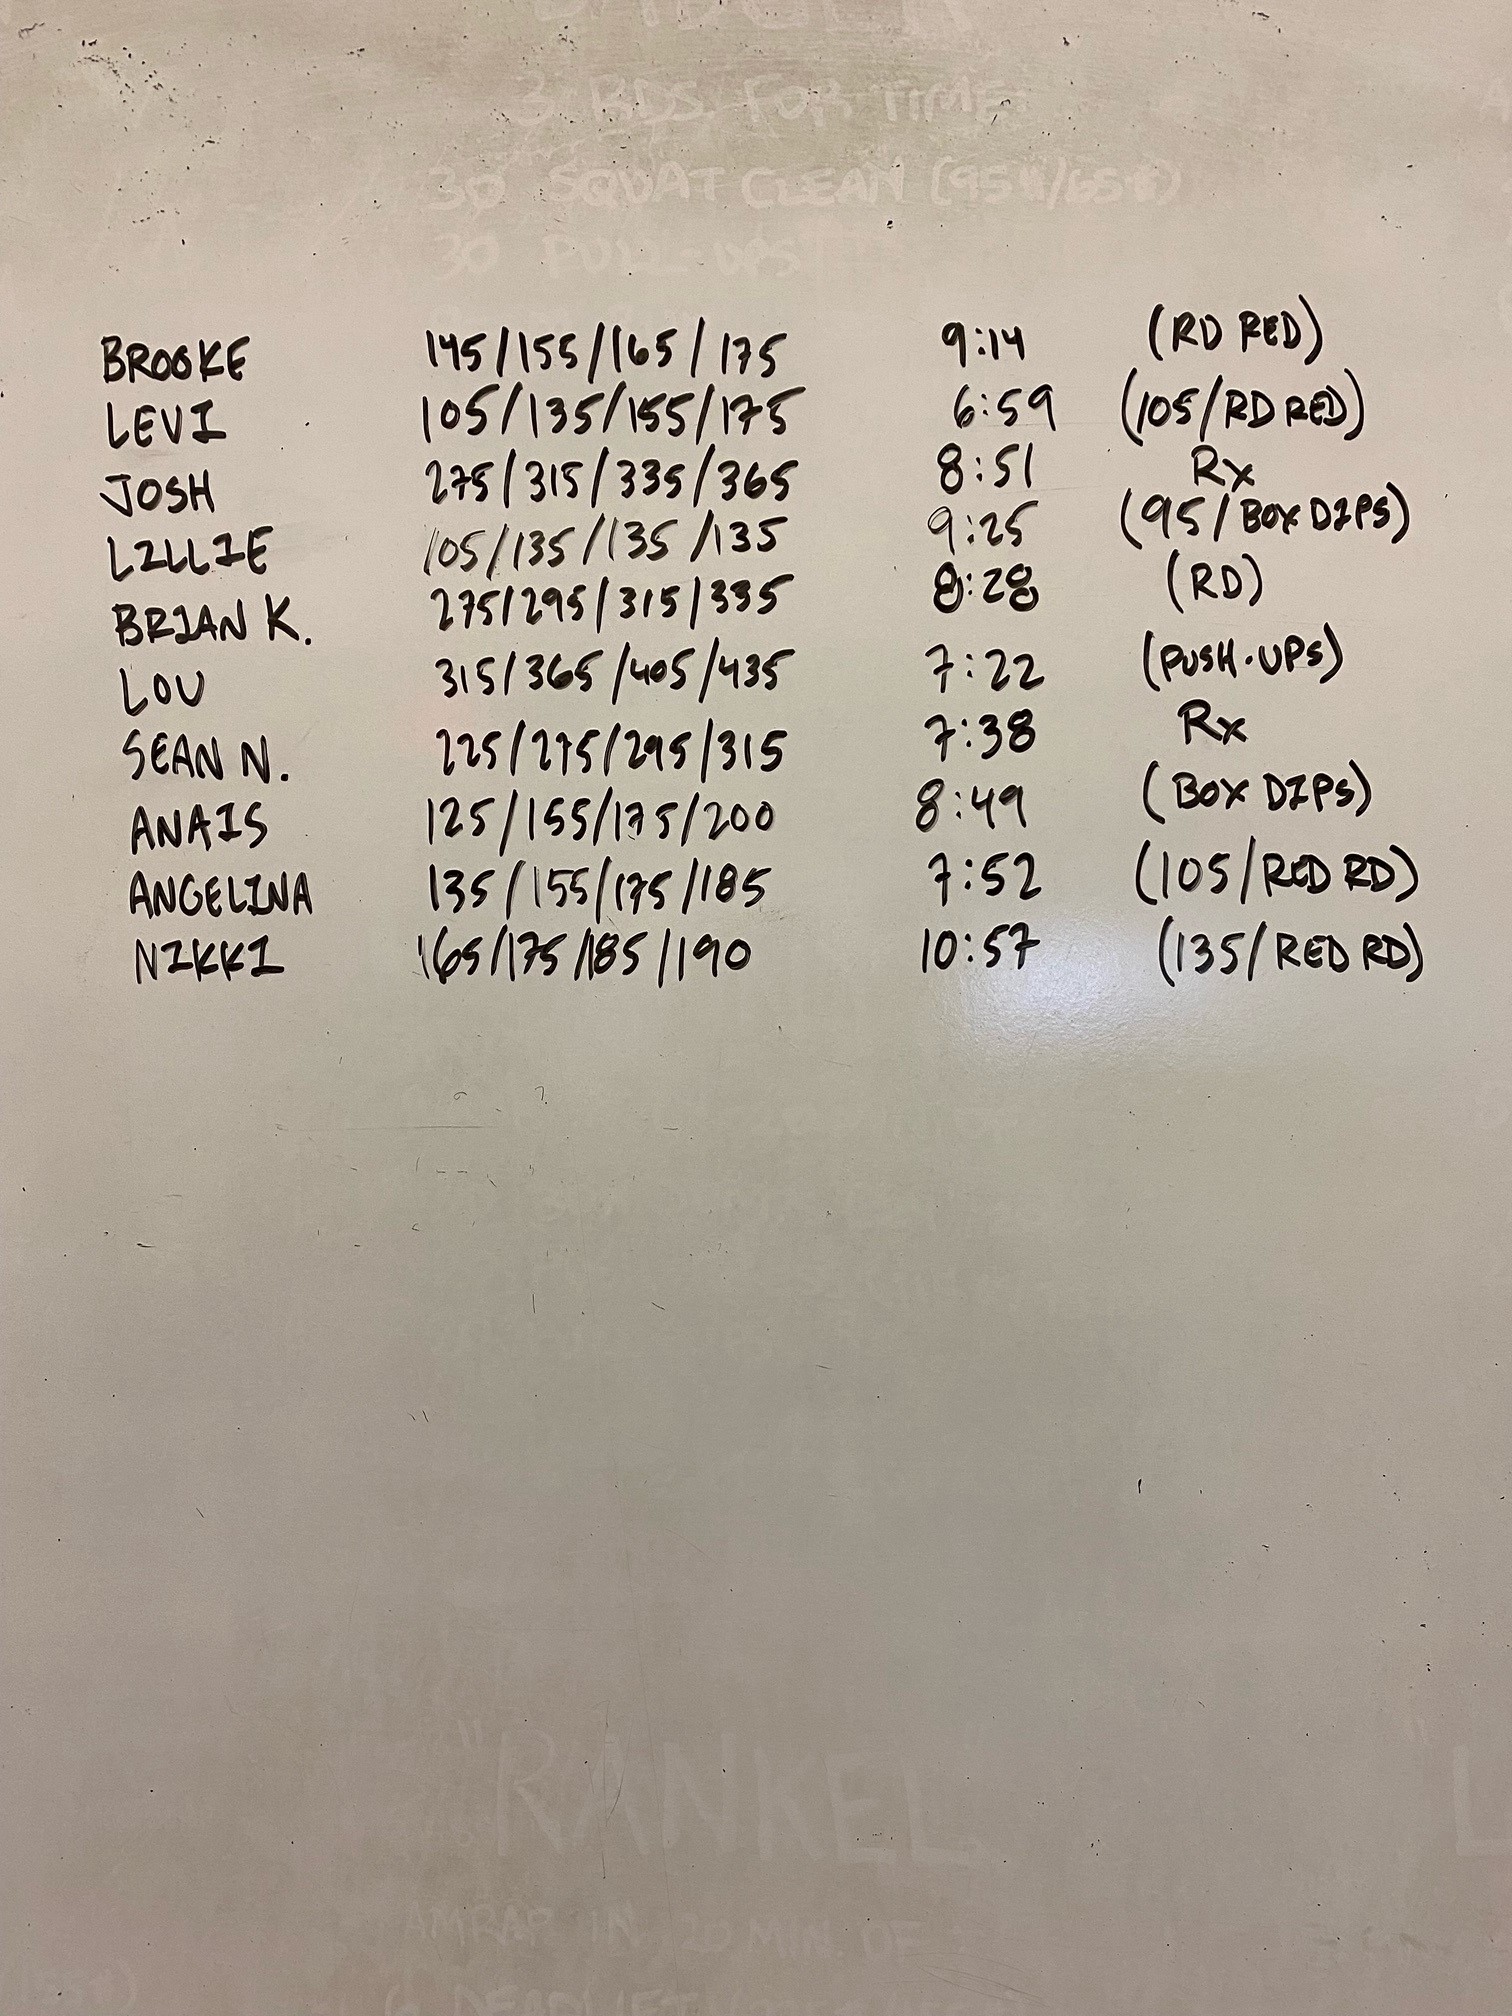 3 RDS. FOR TIME:
30 SQUAT CLEAN (95#/65#)
30 PULL-UPS
BROOKE 145/155/165/175 9:14 (RD RED)
LEVI 105/135/155/175 6:59 (105/RD RED)
JOSH 275/315/335/365 8:51 Rx
LILLIE 105/135/135/135 9:25 (95/BOX DIPS)
BRIAN K. 275/295/315/335 8:28 (RD)
LOU 315/365/405/435 7:22 (PUSH-UPS)
SEAN N. 225/275/295/315 7:38 Rx
ANAIS 125/155/175/200 8:49 (BOX DIPS)
ANGELINA 135/155/175/185 7:52 (105/RED RD)
NIKKI 165/175/185/190 10:57 (135/RED RD)
"RANKEL
AMRAP IN 20 MIN. OF
6 DEADLIFT